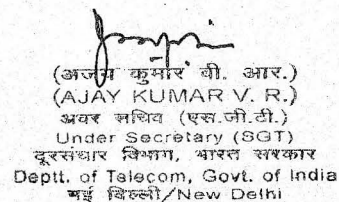 (अजय कुमार वी. आर.)
(AJAY KUMAR V. R.)
अवर सचिव (एस.जी.टी.)
Under Secretary (SGT)
दूरसंचार विभाग, भारत सरकार
Deptt. of Telecom, Govt. of India
नई दिल्ली/New Delhi